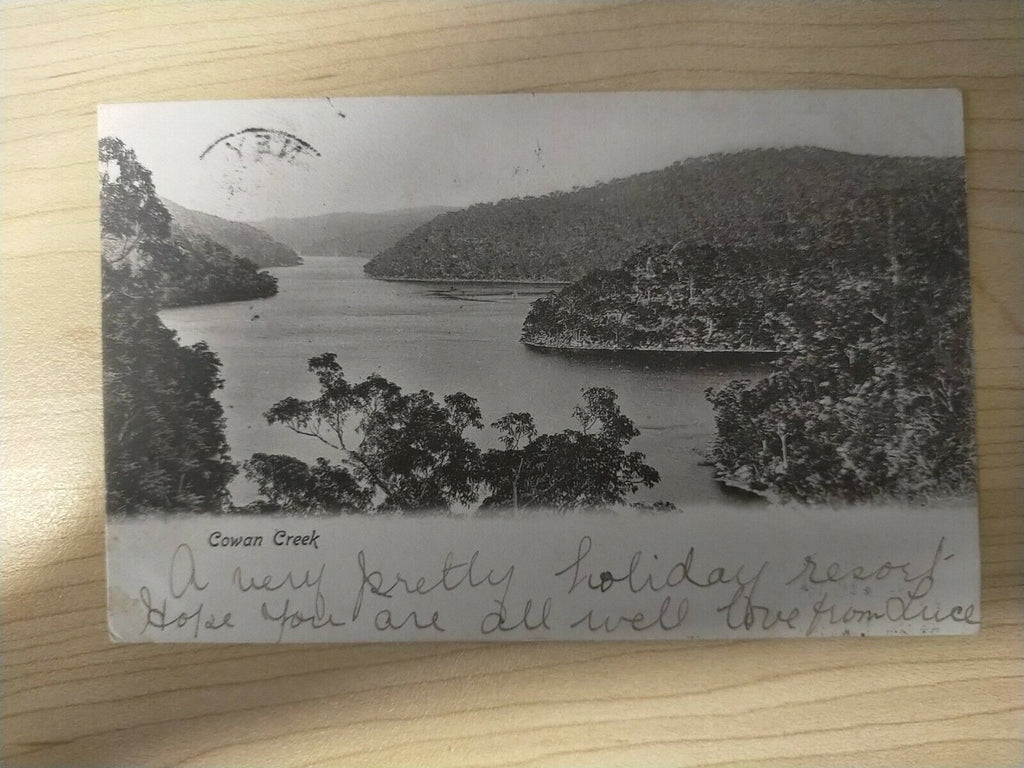 Cowan Creek
A very pretty holiday resort
Hope you are all well love from